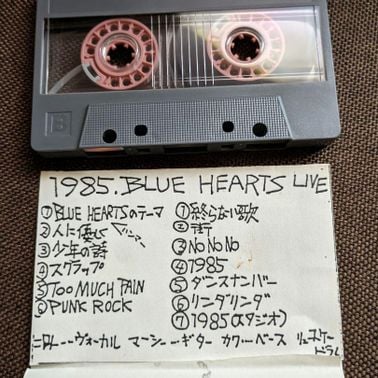 B
1985.BLUE HEARTS LIVE
①BLUE HEARTSのテーマ
②人に優しく
③少年の詩
④スクラップ
⑤TOO MUCH PAIN
⑥PUNK ROCK
①終らない歌
②街
③NO NO NO
④1985
⑤ダンスナンバー
⑥リンダリンダ
⑦1985(スタジオ)
ヒロト・・ヴォーカル マーシー・・ギター カワ・・ベース リュースケー
ドラム